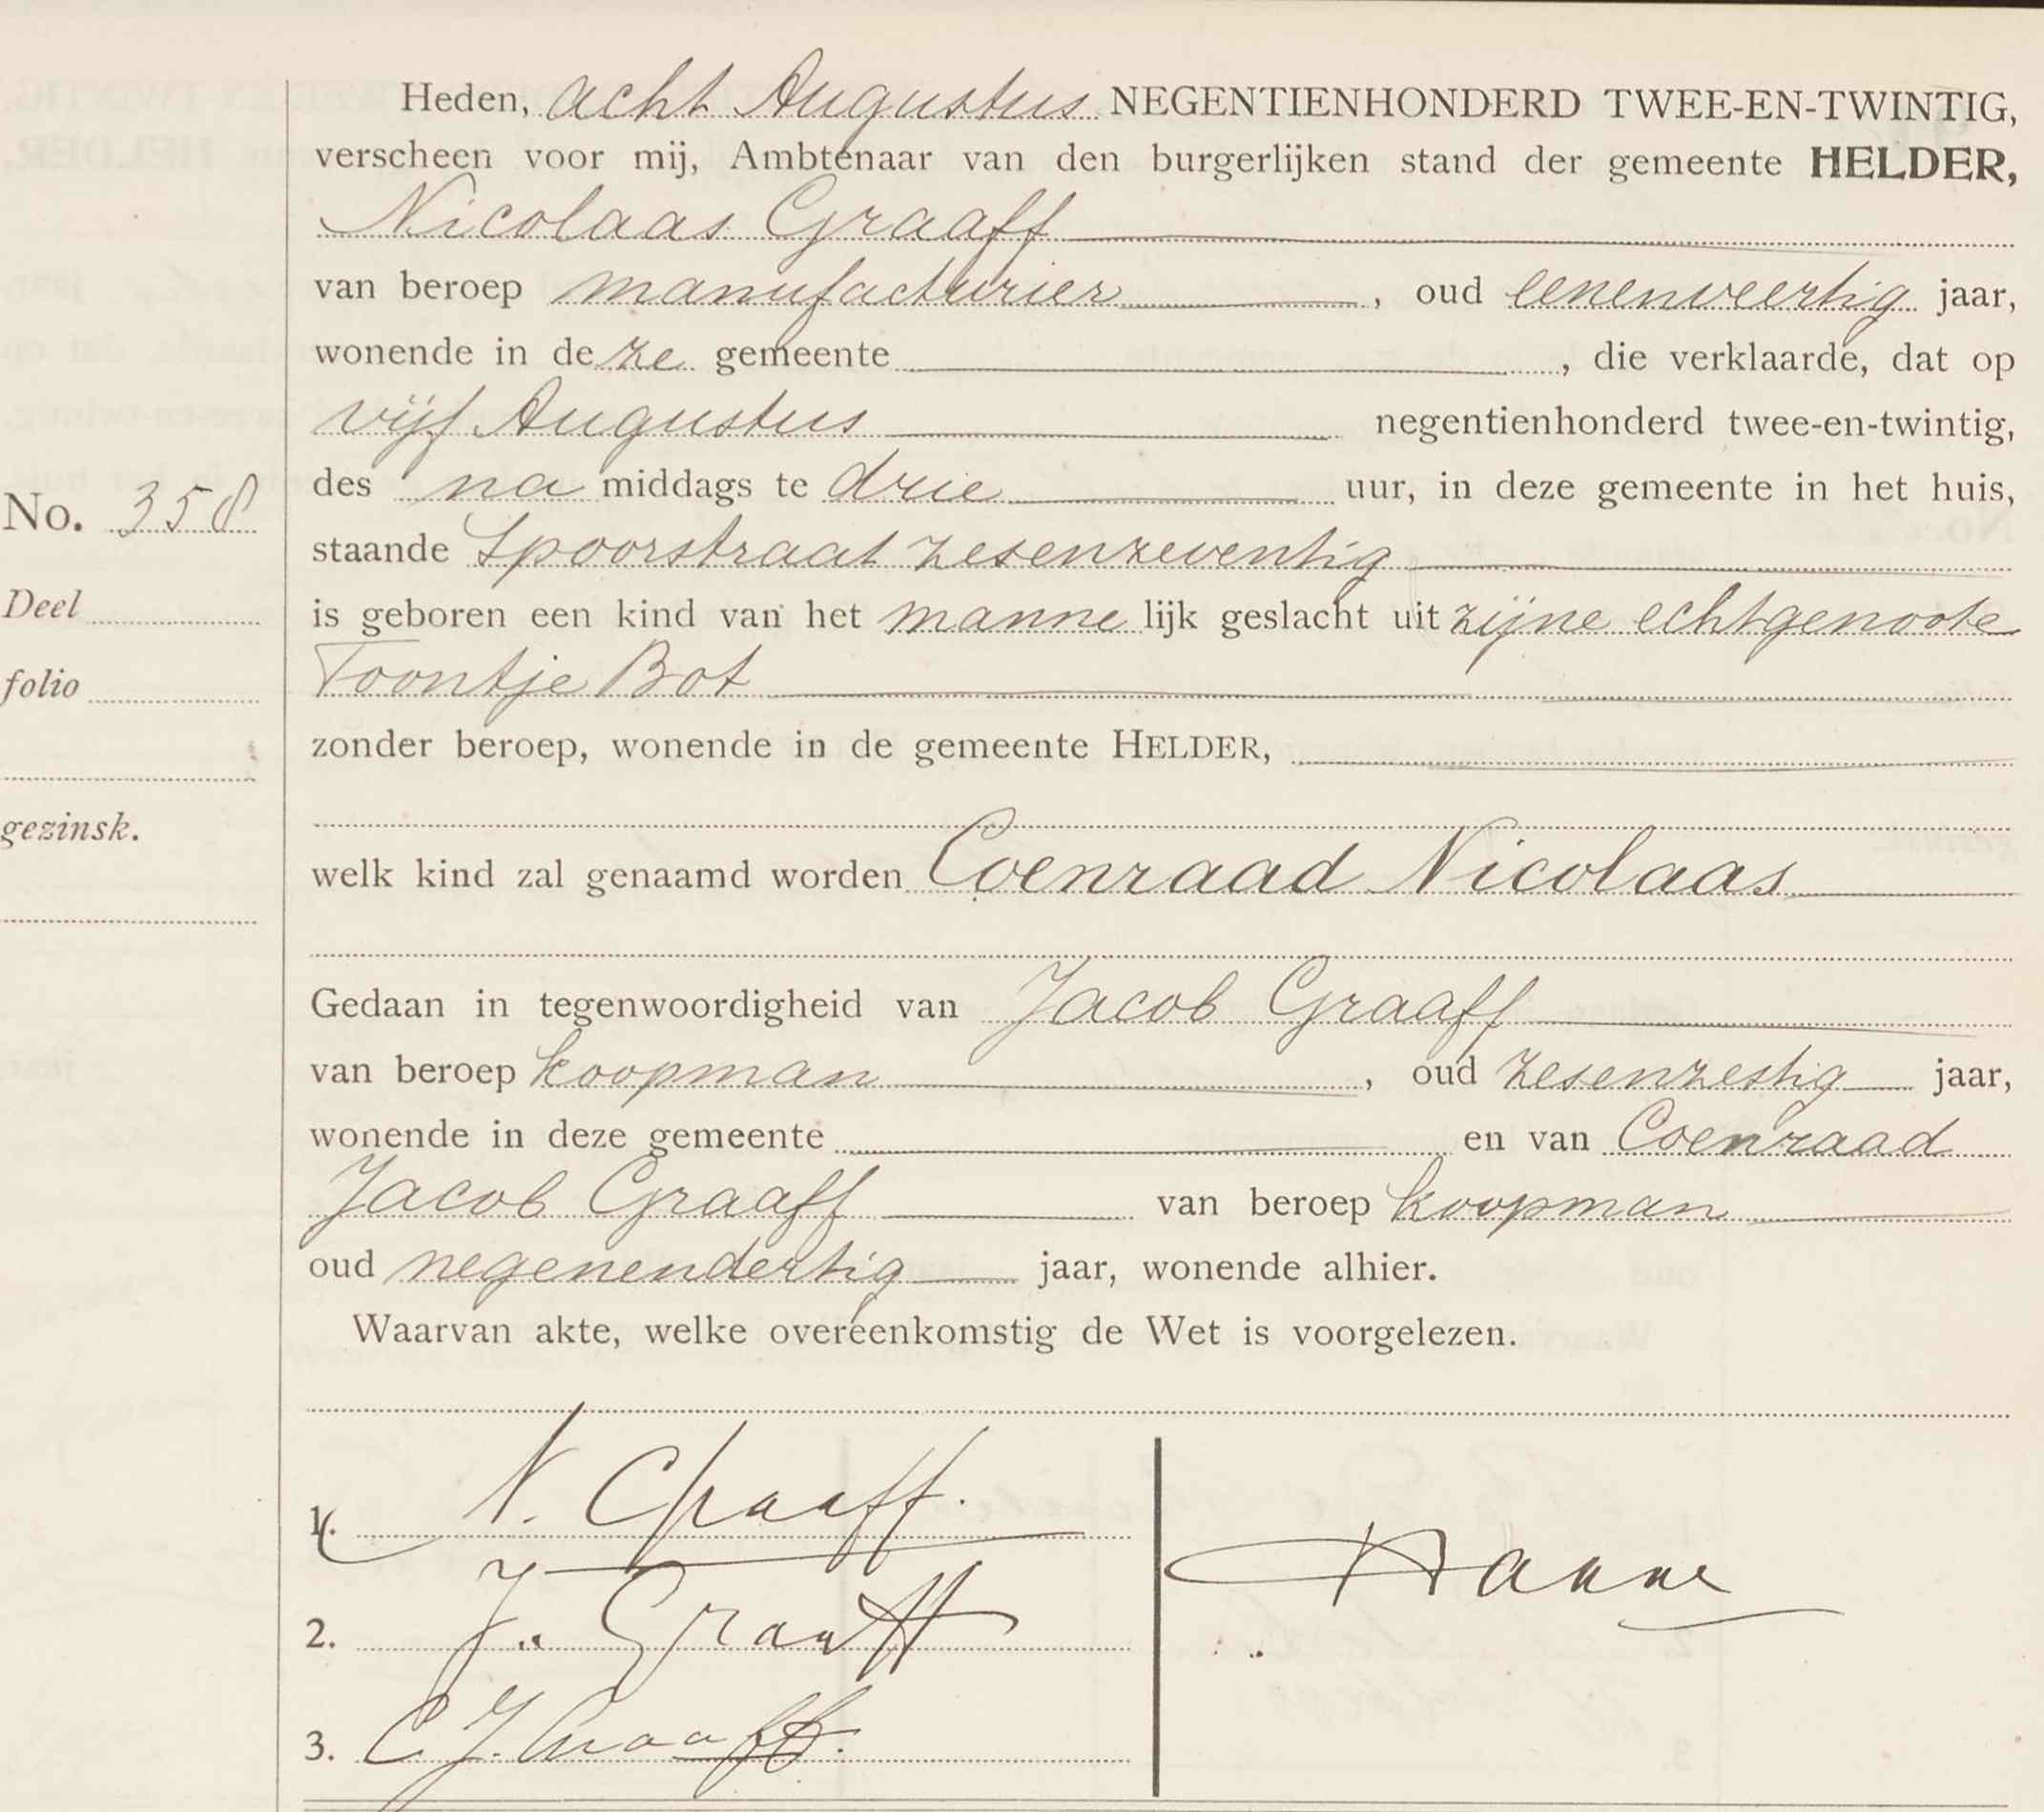 Heden, acht Augustus NEGENTIENHONDERD TWEE-EN-TWINTIG,
verscheen voor mij, Ambtenaar van den burgerlijken stand der gemeente HELDER,
Nicolaas Graaff
van beroep manufacturier, oud eenenveertig jaar,
wonende in deze gemeente, die verklaarde, dat op
vijf Augustus negentienhonderd twee-en-twintig,
des na middags te drie uur, in deze gemeente in het huis,
No. 358
staande Spoorstraat zesenzeventig
Deel
is geboren een kind van het mannelijk geslacht uit zijne echtgenoote
folio
Toontje Bot
zonder beroep, wonende in de gemeente HELDER,
gezinsk.
welk kind zal genaamd worden Coenraad Nicolaas
Gedaan in tegenwoordigheid van Jacob Graaff
van beroep koopman, oud zesenzestig jaar,
wonende in deze gemeente en van Coenraad
Jacob Graaff van beroep koopman
oud negenendertig jaar, wonende alhier.
Waarvan akte, welke overeenkomstig de Wet is voorgelezen.
1. N. Graaff.
2. J. Graaff
3. C. J. Graaff.